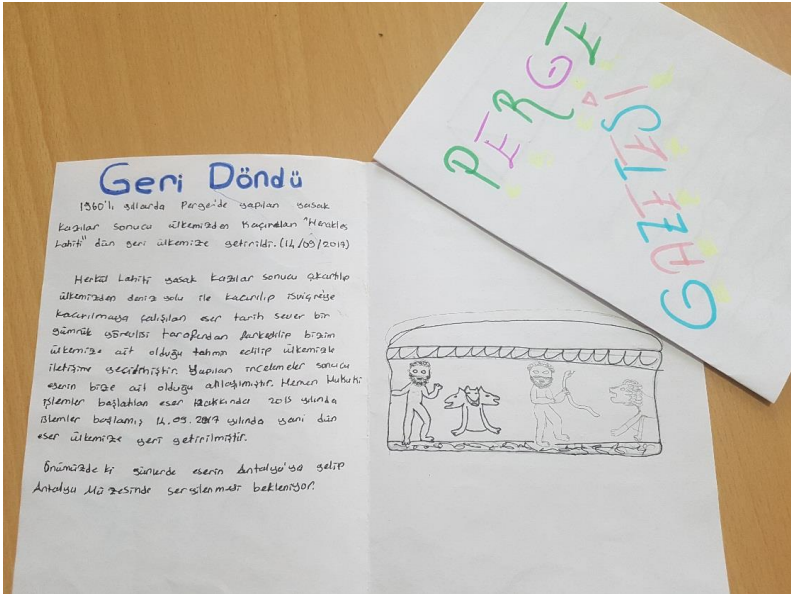 PERGE
GAZETESİ
Geri Döndü
1960'lı yıllarda Perge'de yapılan yasak
kazılar sonucu ülkemizden kaçırılan "Herakles
Lahiti" dün geri ülkemize getirildi. (14/09/2017)
Herkül Lahiti yasak kazılar sonucu çıkartılıp
ülkemizden deniz yolu ile kaçırılıp isviçreye
kaçırılmaya çalışılan eser tarih sever bir
gümrük görevlisi tarafından farkedilip bizim
ülkemize ait olduğu tahmin edilip ülkemizle
iletişime geçilmiştir. Yapılan incelemeler sonucu
eserin bize ait olduğu anlaşılmıştır. Hemen Hukuki
işlemler başlatılan eser Hakkında 2015 yılında
işlemler başlamış 14.09.2017 yılında yani dün
eser ülkemize geri getirilmiştir.
Önümüzde ki günlerde eserin Antalya'ya gelip
Antalya Müzesinde sergilenmedi bekleniyor.